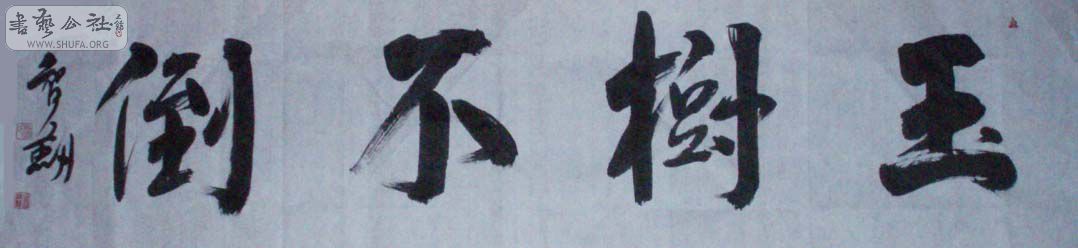 玉樹不倒
書藝公社
WWW.SHUFA.ORG